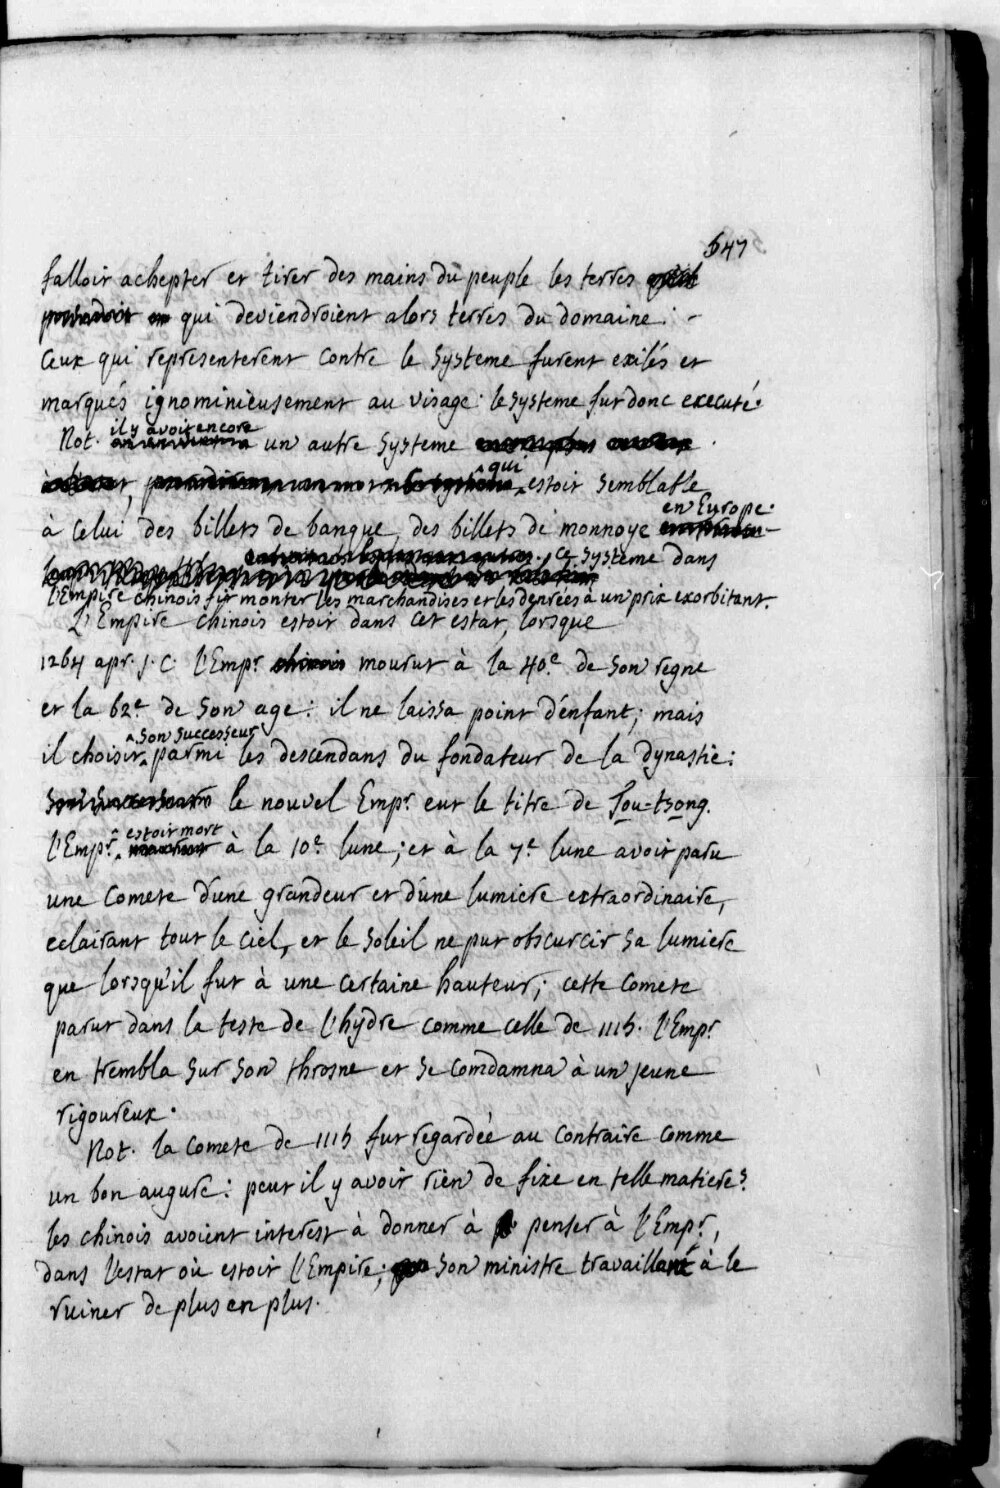 547
falloir achepter et tirer des mains du peuple les terres
qui deviendroient alors terres du domaine.
Ceux qui representerent contre le systeme furent exilés et
marqués ignominieusement au visage. le systeme fut donc executé.
Not. il y avoit encore un autre systeme
qui estoit semblable
à celui des billets de banque, des billets de monnoye en Europe.
ce système dans
l'Empire chinois fit monter les marchandises et les denrées à un prix exorbitant.
L'Empire chinois estoit dans cet estat, lorsque
1264 apr. J. C. l'Empr mourut à la 40e de son regne
et la 62e de son age: il ne laissa point d'enfant; mais
il choisit son successeur parmi les descendans du fondateur de la dynastie:
le nouvel Empr eut le titre de Tou-tsong.
l'Empr estoit mort à la 10e lune; et à la 7e lune avoit paru
une comete d'une grandeur et d'une lumiere extraordinaire,
eclairant tout le ciel, et le soleil ne put obscurcir sa lumiere
que lorsqu'il fut à une certaine hauteur; cette comete
parut dans la teste de l'hydre comme celle de 1115. l'Empr
en trembla sur son throsne et se comdamna à un jeune
rigoureux.
Not. la comete de 1115 fut regardée au contraire comme
un bon augure: peut il y avoir rien de fixe en telle matiere?
les chinois avoient interest à donner à penser à l'Empr,
dans l'estat où estoit l'Empire; son ministre travaillant à le
ruiner de plus en plus.